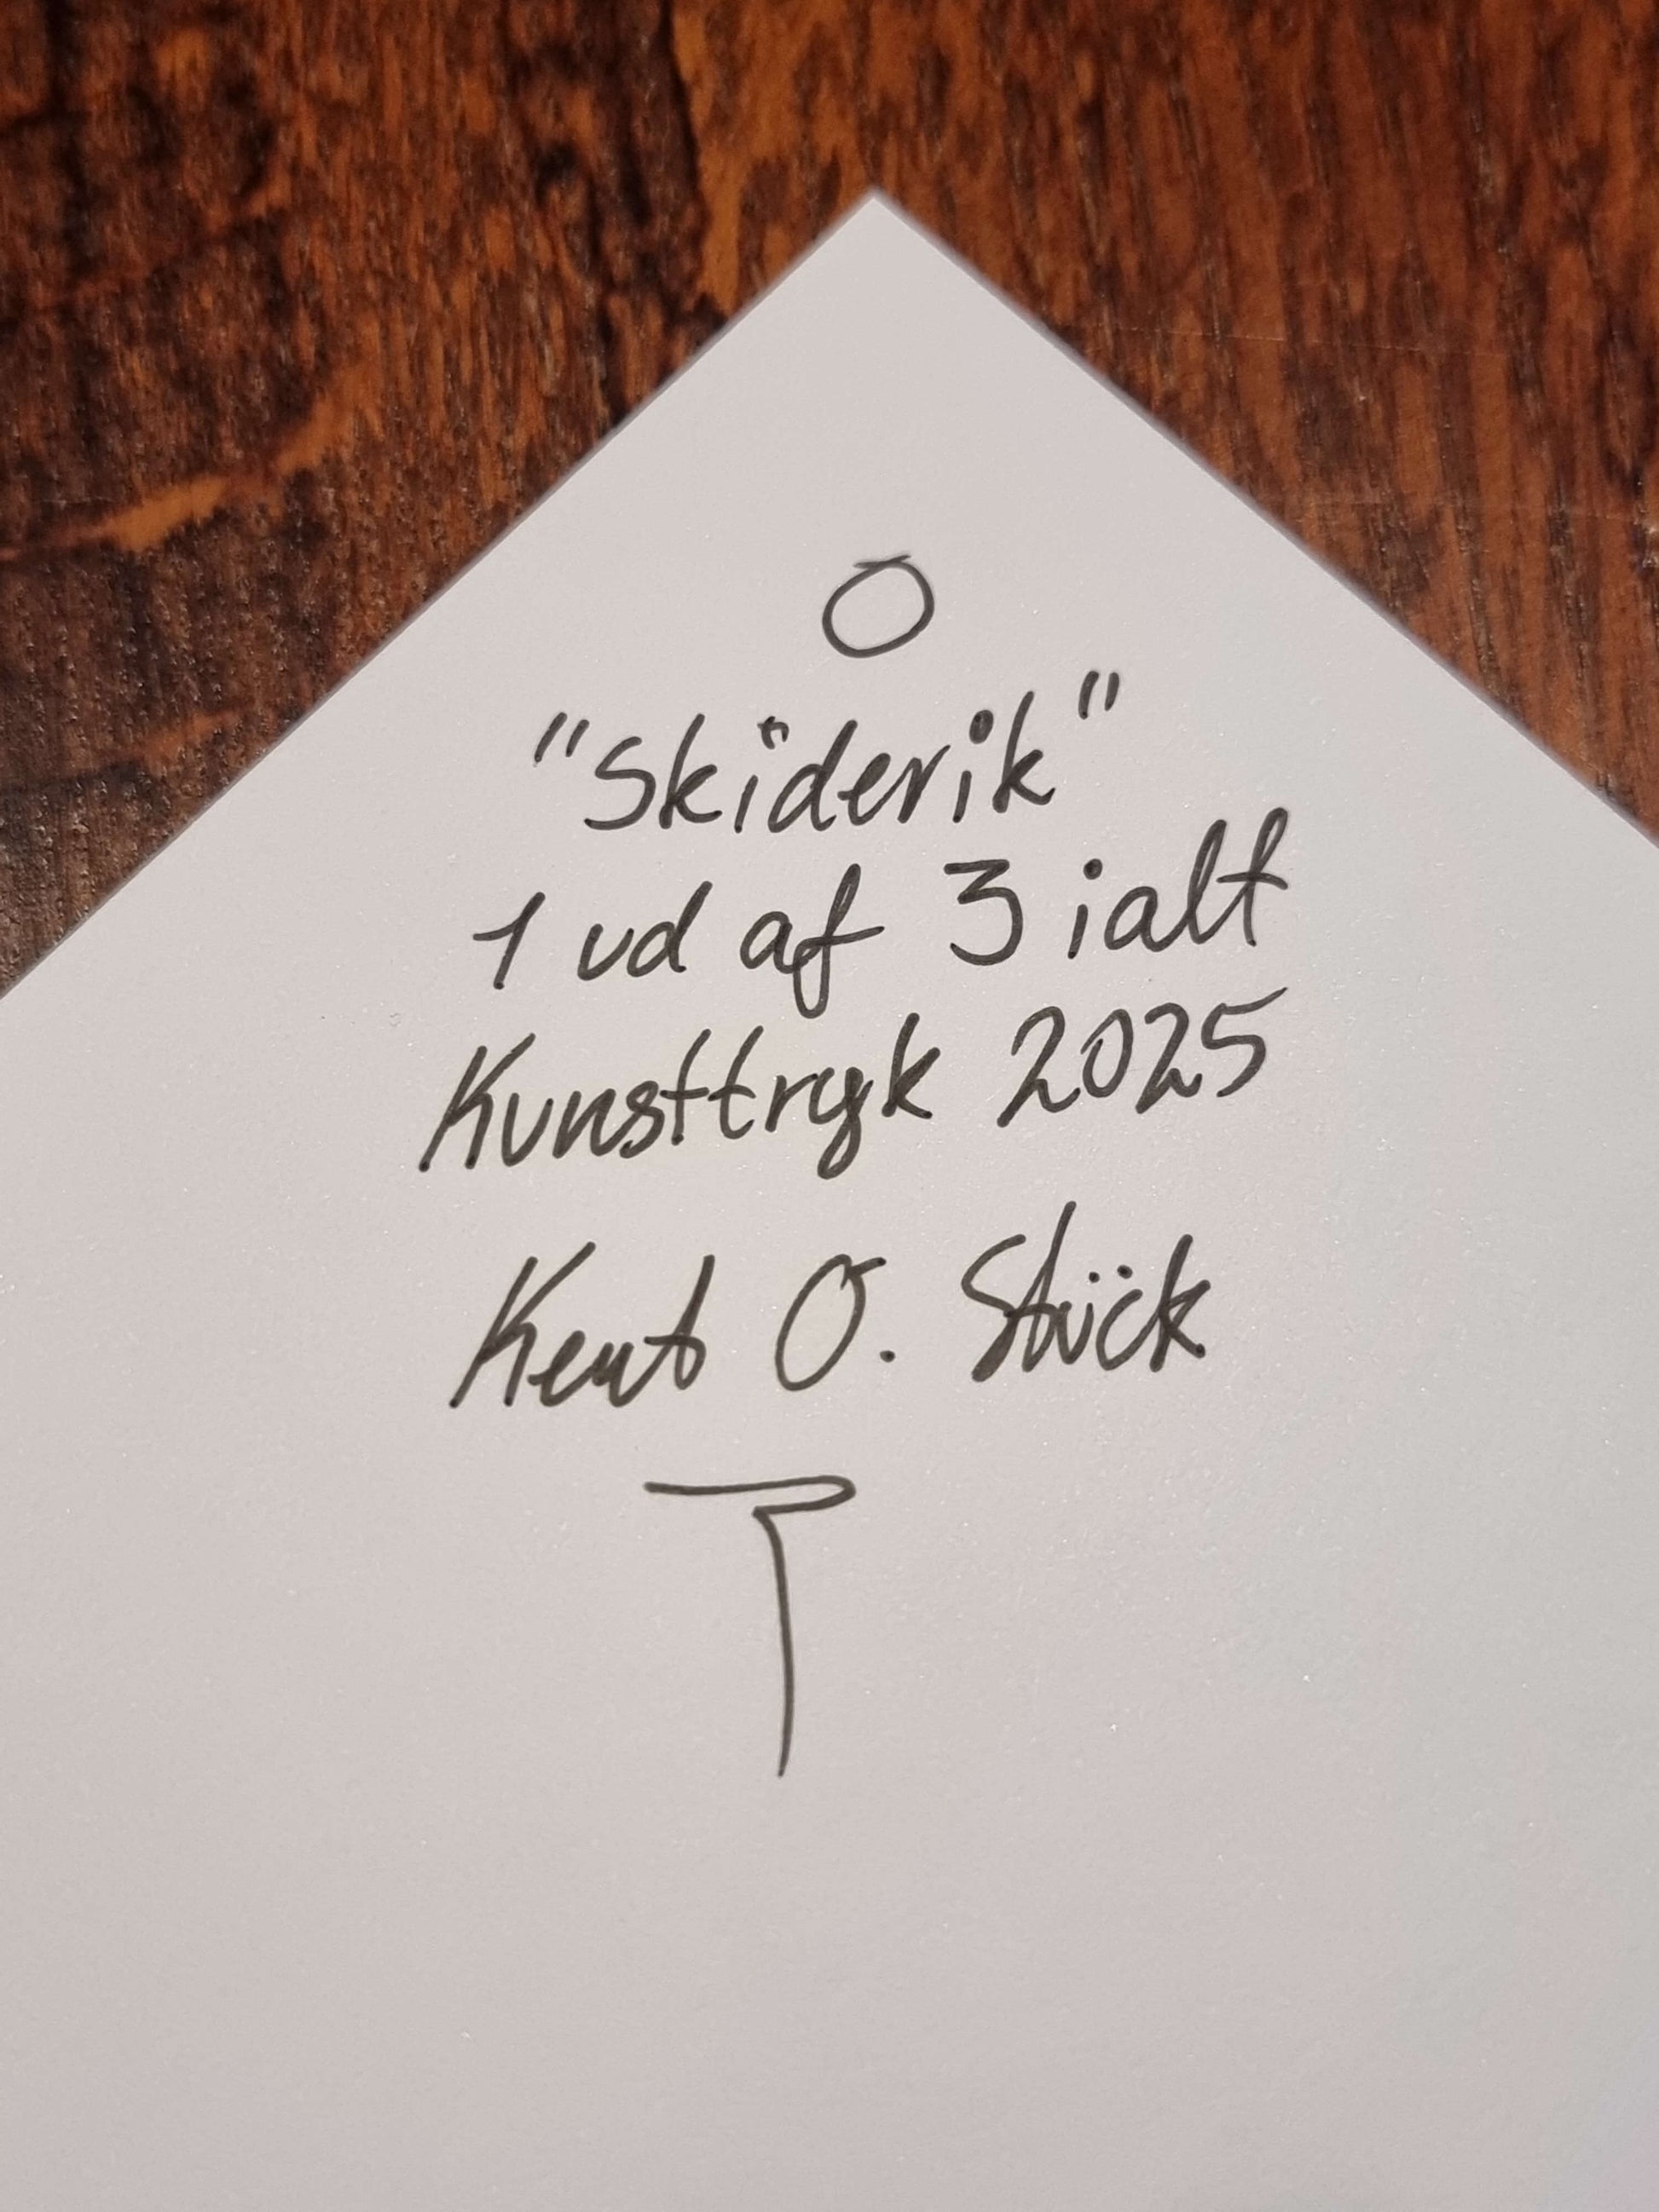 O
"Skiderik"
1 ud af 3 ialt
Kunsttryk 2025
Kent O. Stück
T